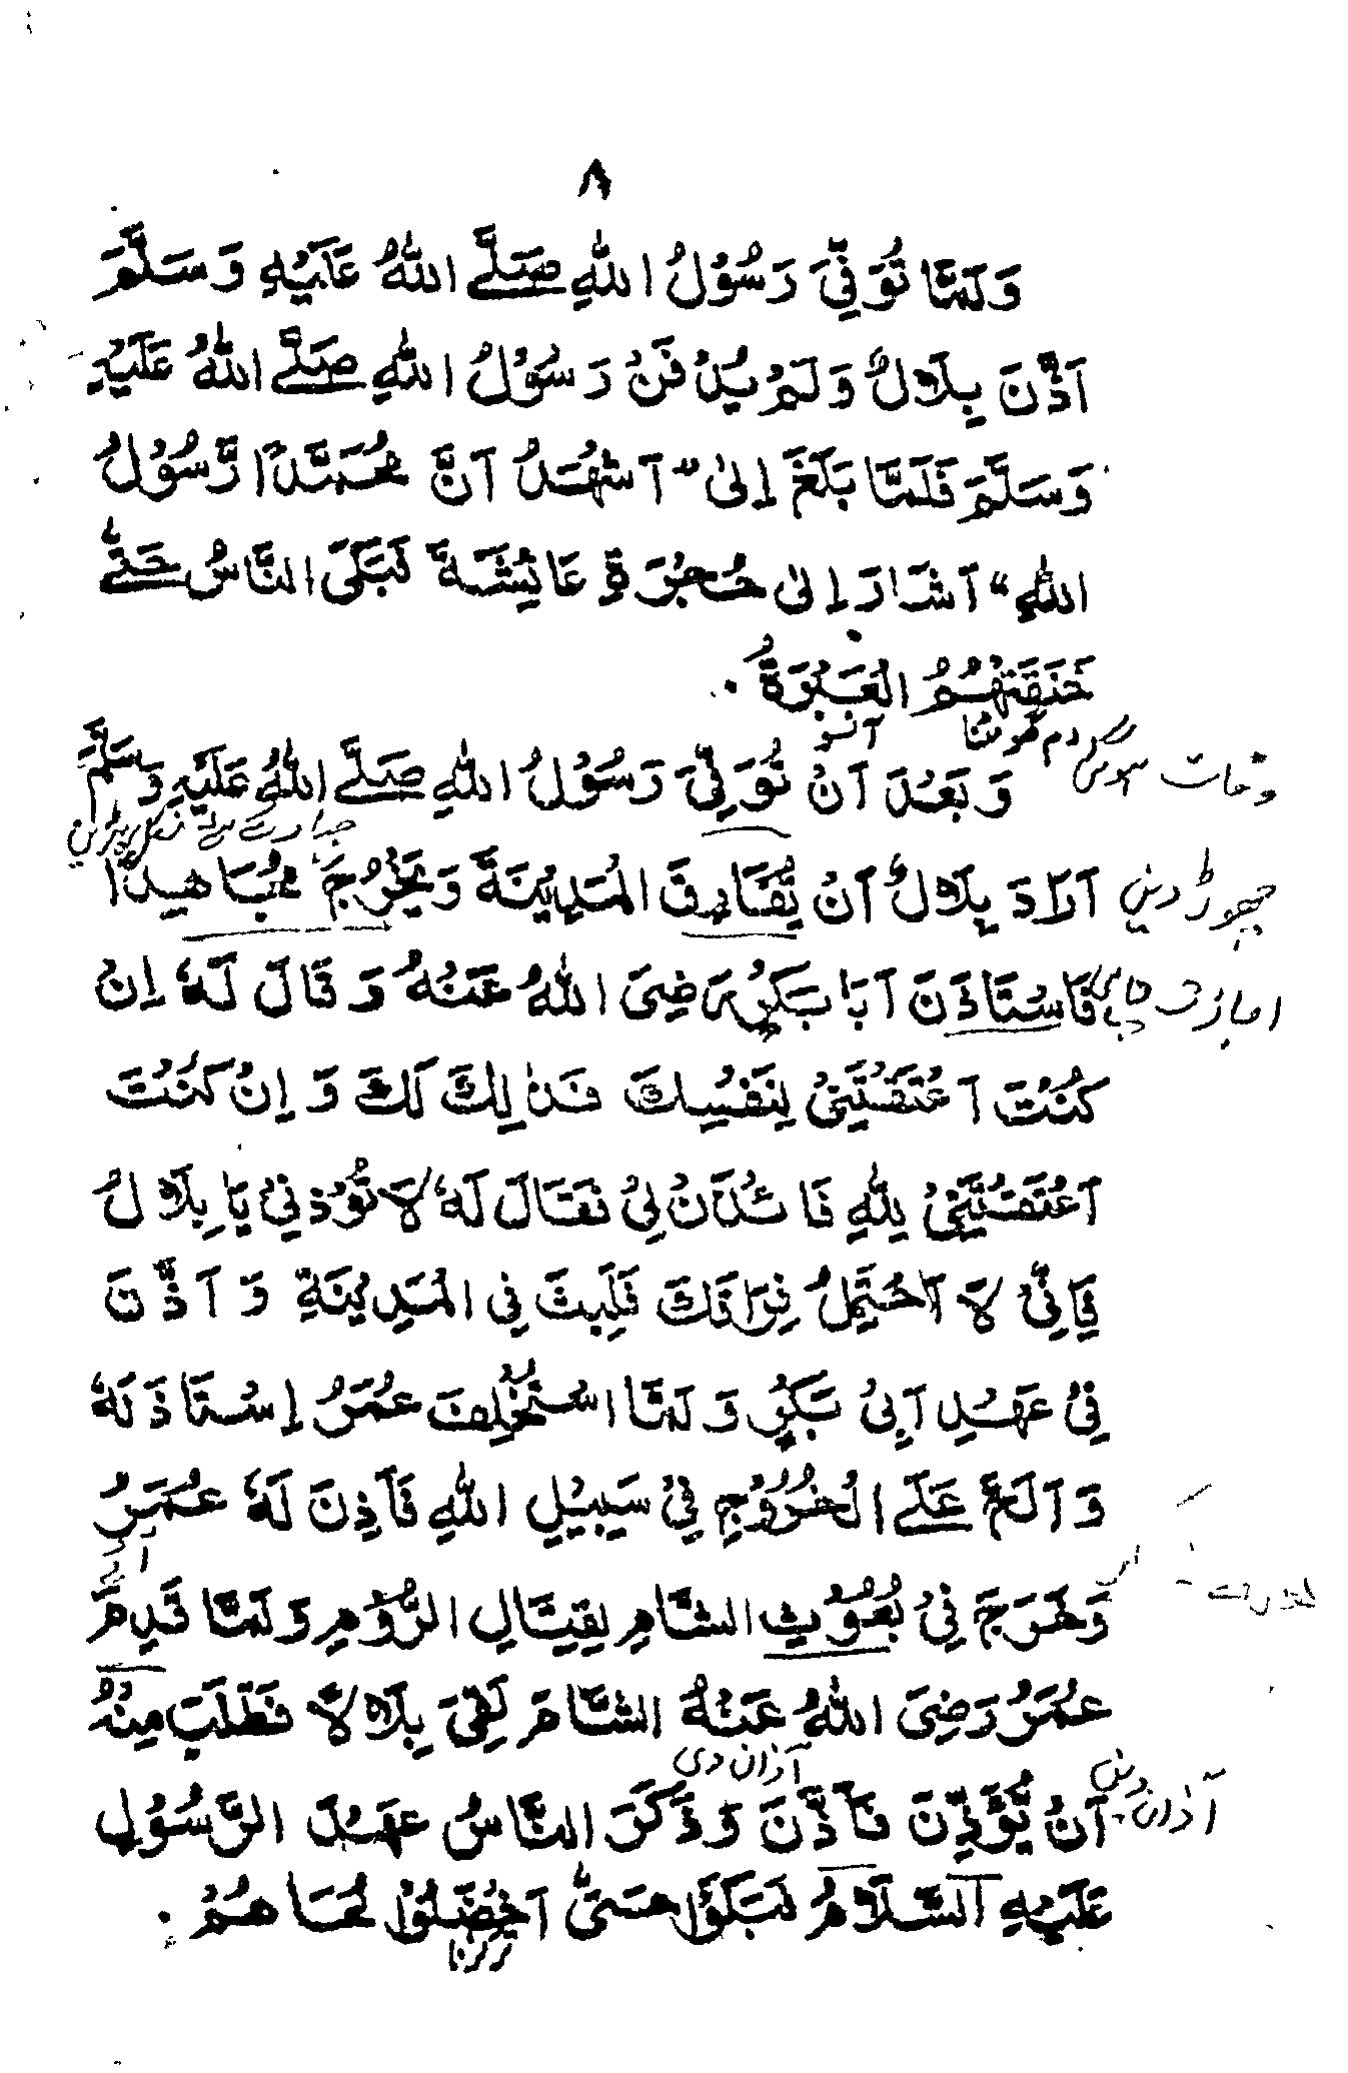 ٨
وَلَمَّا تُوَفِّيَ رَسُوْلُ اللّٰهِ صَلَّے اللّٰهُ عَلَيْهِ وَسَلَّمَ
اَذَّنَ بِلَالٌ وَلَمْ يُدْفَنْ رَسُوْلُ اللّٰهِ صَلَّے اللّٰهُ عَلَيْهِ
وَسَلَّمَ فَلَمَّا بَلَغَ إِلىٰ "اَشْهَدُ اَنَّ مُحَمَّدًا رَّسُوْلُ
اللّٰهِ" اَشَارَ إِلىٰ حُجْرَةِ عَائِشَةَ فَبَكَى النَّاسُ حَتّٰے
خَنَقَتْهُمُ الْعَبْرَةُ .
آنسو
دم گھوٹنا
وفات ہوگئ
وَبَعْدَ اَنْ تُوَفِّيَ رَسُوْلُ اللّٰهِ صَلَّے اللّٰهُ عَلَيْهِ وَسَلَّمَ
جہاد کے لئے نکل پڑیں
اَرَادَ بِلَالٌ اَنْ يُّفَارِقَ الْمَدِيْنَةَ وَيَخْرُجَ مُجَاهِدًا
چھوڑ دیں
فَاسْتَاذَنَ اَبَا بَكْرٍ رَضِىَ اللّٰهُ عَنْهُ وَقَالَ لَهٗ اِنْ
اجازت چاہی
كُنْتَ اَعْتَقْتَنِىْ لِنَفْسِكَ فَذٰلِكَ لَكَ وَاِنْ كُنْتَ
اَعْتَقْتَنِىْ لِلّٰهِ فَائْذَنْ لِىْ فَقَالَ لَهٗ لَا تُؤْذِنِىْ يَا بِلَالُ
فَاِنِّىْ لَا اَحْتَمِلُ فِرَاقَكَ فَلَبِثَ فِى الْمَدِيْنَةِ وَاَذَّنَ
فِىْ عَهْدِ اَبِىْ بَكْرٍ وَلَمَّا اسْتُخْلِفَ عُمَرُ إِسْتَاذَنَهٗ
وَاَلَحَّ عَلَے الْخُرُوْجِ فِىْ سَبِيْلِ اللّٰهِ فَاَذِنَ لَهٗ عُمَرُ
آئے
وَخَرَجَ فِىْ بُعُوْثِ الشَّامِ لِقِتَالِ الرُّوْمِ وَلَمَّا قَدِمَ
عُمَرُ رَضِىَ اللّٰهُ عَنْهُ الشَّامَ لَقِىَ بِلَالًا فَطَلَبَ مِنْهُ
آذان دی
اَنْ يُّؤَذِّنَ فَاَذَّنَ وَذَكَرَ النَّاسُ عَهْدَ الرَّسُوْلِ
آذان دیں
عَلَيْهِ السَّلَامُ فَبَكَوْا حَتّٰى اَخْضَلُوْا لُحَاهُمْ .